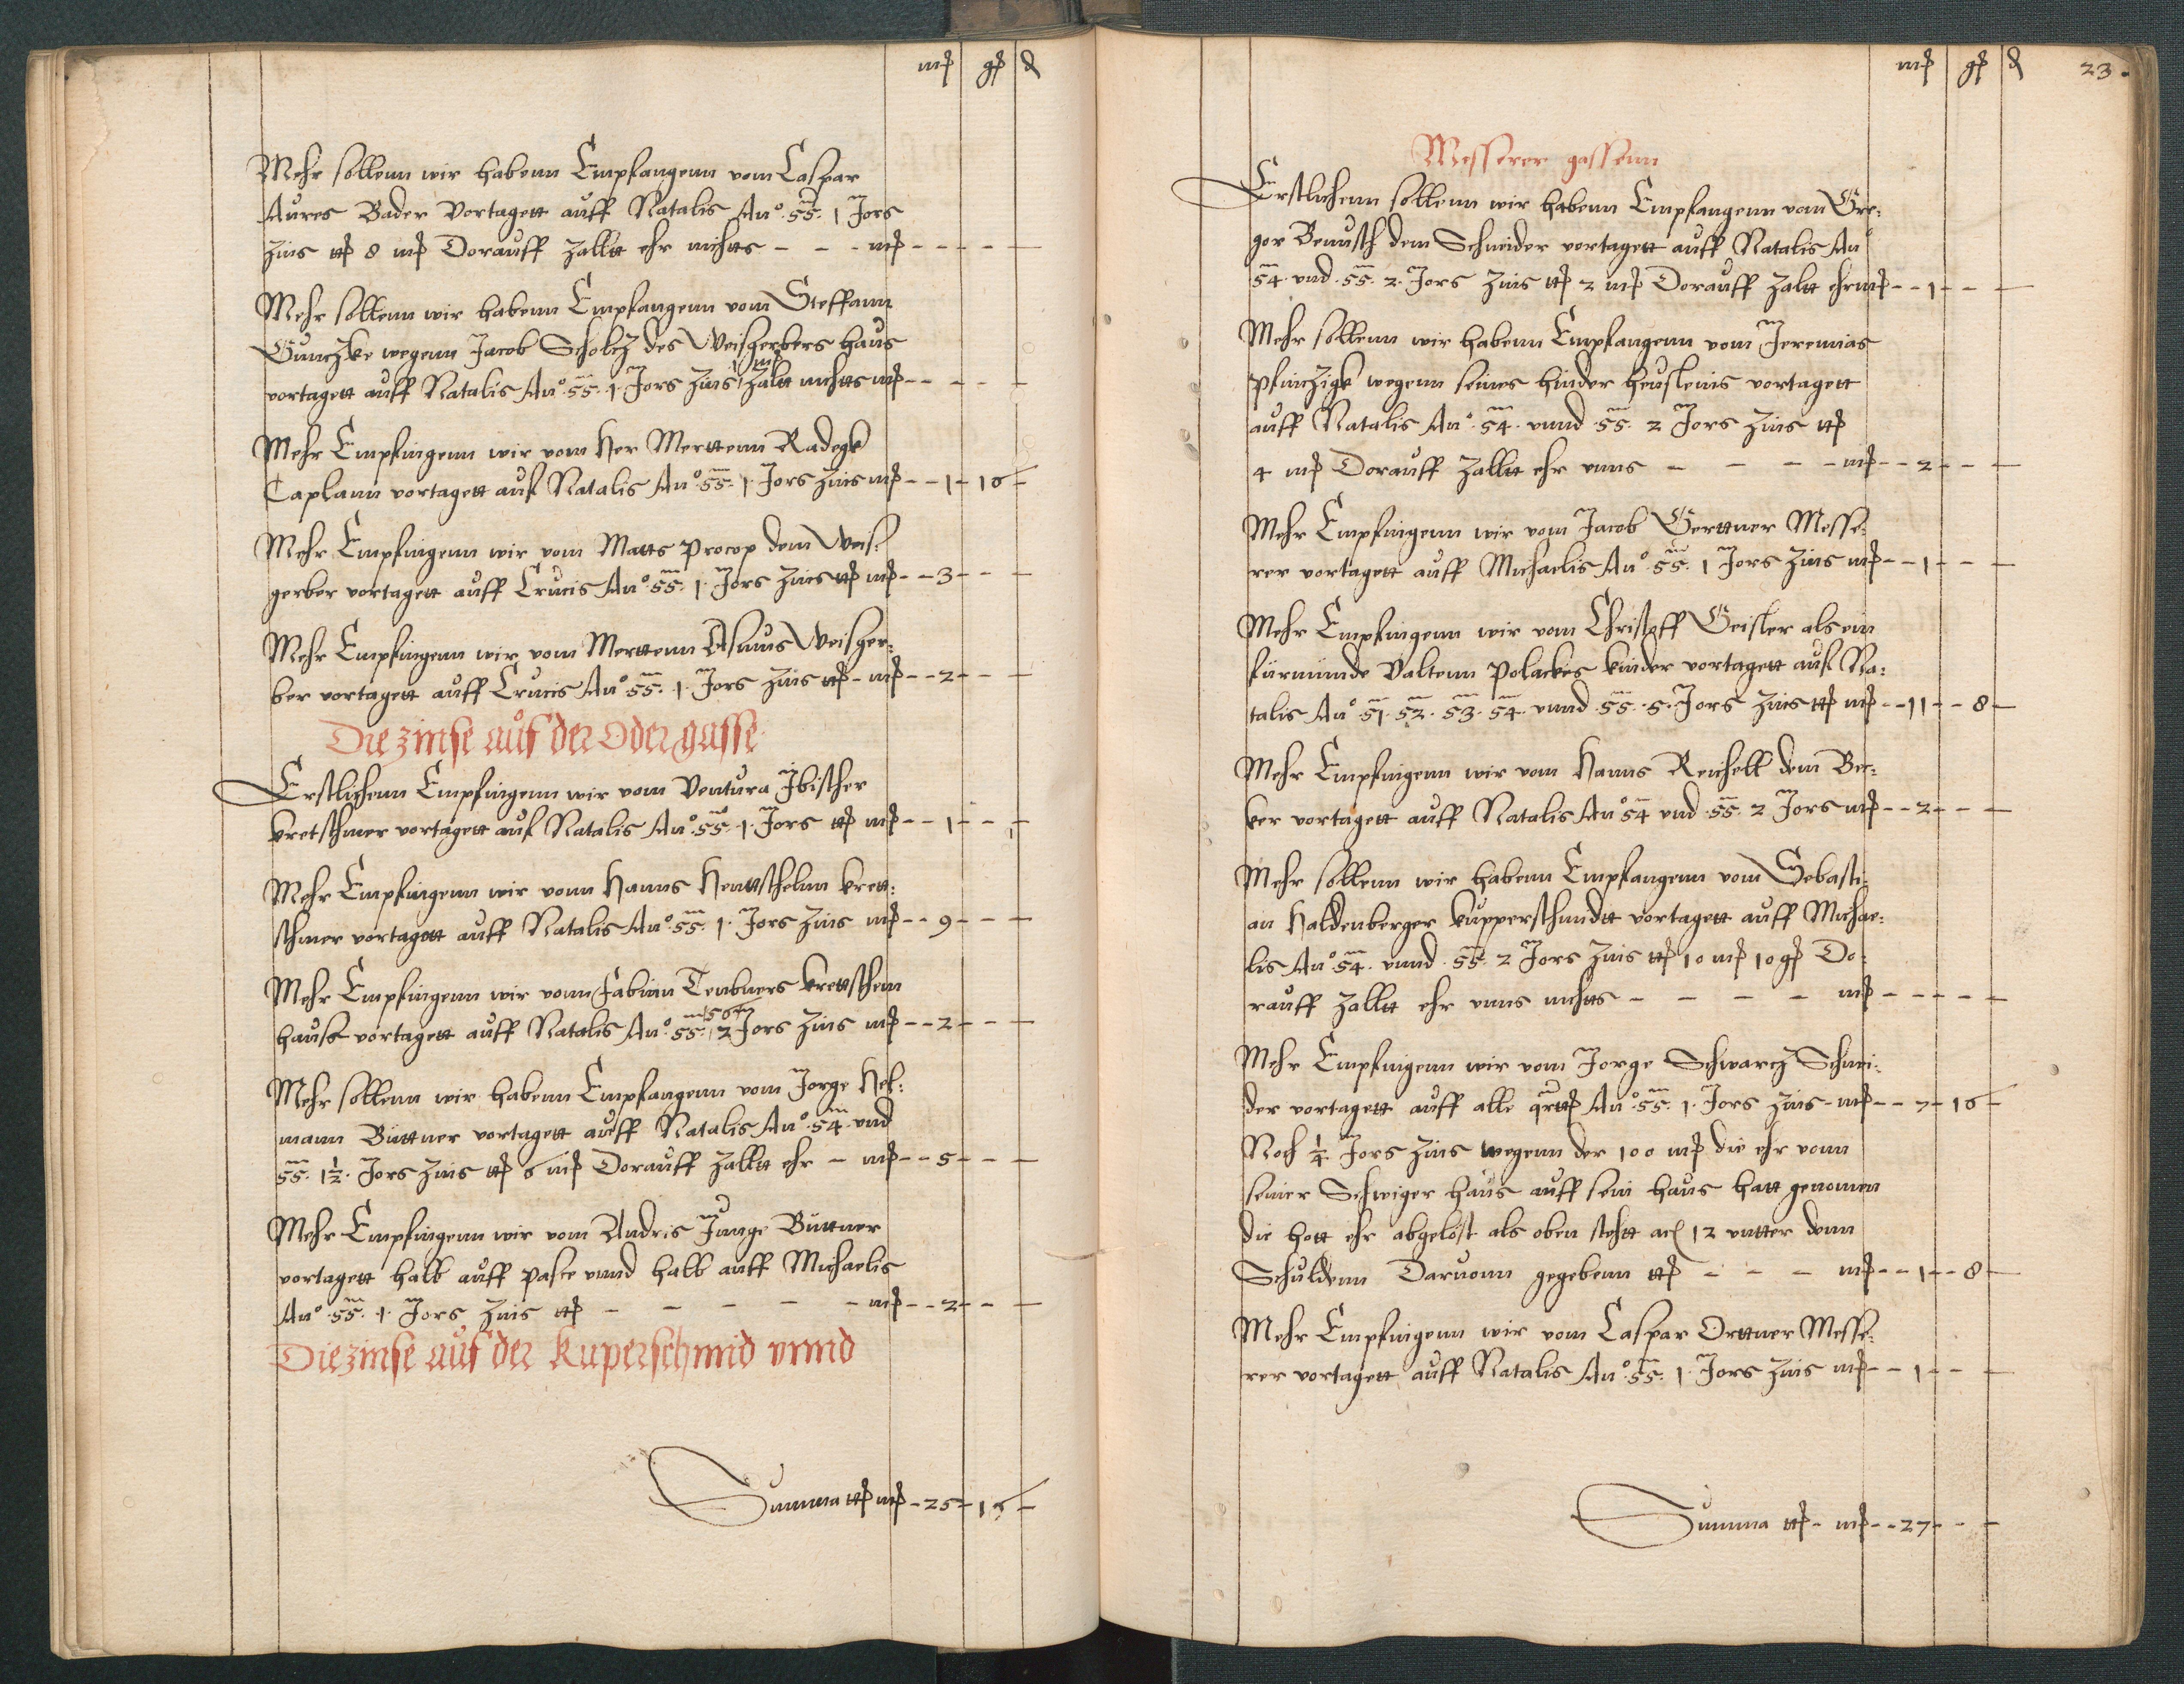 mƷ gƷ d
Mehr sollenn wir habenn Empfangenn vom Caspar
Aures Bader vortagett auff Natalis An° 55. 1 Jors
zins ttƷ 8 mƷ Dorauff zalltt ehr nichtts - - - mƷ - - - - -
Mehr sollenn wir habenn Empfangenn vom Steffann
Gunczke wegenn Jacob Scholcz des Weisgerbers haus
vortagett auff Natalis An° 55. 1. Jors zins zaltt nichtts mƷ - - - - -
Mehr Empfingenn wir vom Her Merttenn Radegk
Caplann vortagett auf Natalis An° 55. 1. Jors zins mƷ - - 1 - 16 -
Mehr Empfingenn wir vom Matts Procop dem Weis=
gerber vortagett auff Crucis An° 55. 1. Jors zins ttƷ mƷ - - 3 - - -
Mehr Empfingenn wir vom Merttenn Asmus Weisger=
ber vortagett auff Crucis An° 55. 1. Jors zins ttƷ - mƷ - - 2 - - -
Die zinse auf der Oder gasse
Erstlichenn Empfingenn wir vom Ventura Jbischer
kretschmer vortagett auf Natalis An° 55. 1. Jors ttƷ mƷ - - 1 - - -
Mehr Empfingenn wir vonn Hanns Henttscheln krett=
schmer vortagett auff Natalis An° 55. 1. Jors zins mƷ - - 9 - - -
Mehr Empfingenn wir vonn Fabian Teubners krettschem
hauss vortagett auff Natalis An° 55. 56 2 Jors zins mƷ - - 2 - - -
Mehr sollenn wir habenn Empfangenn vom Jorge Hel=
mann Buttner vortagett auff Natalis An° 54. und
55. 1½. Jors zins ttƷ 6 mƷ Dorauff zalltt ehr - mƷ - - 5 - - -
Mehr Empfingenn wir vom Andris Junge Buttner
vortagett halb auff pasce unnd halb auff Michaelis
An° 55. 1. Jors zins ttƷ - - - - - mƷ - - 2 - - -
Die zinse auf der Kuperschmid unnd
Summa ttƷ mƷ - 25 - 16 -
mƷ gƷ d 23.
Messerer gassenn
Erstlichenn sollenn wir habenn Empfangenn vom Gre=
gor Benusch dem Schneider vortagett auff Natalis An°
54. und 55. 2. Jors zins ttƷ 2 mƷ Dorauff zaltt ehr mƷ - - 1 - - -
Mehr sollenn wir habenn Empfangenn vom Jeremias
pfinczigk wegenn seines hinder heuslenis vortagett
auff Natalis An° 54. unnd 55. 2 Jors zins ttƷ
4 mƷ Dorauff zalltt ehr unns - - - - mƷ - - 2 - - -
Mehr Empfingenn wir vom Jacob Gerttner Messe=
rer vortagett auff Michaelis An° 55. 1 Jors zins mƷ - - 1 - - -
Mehr Empfingenn wir vom Christoff Geisler als ein
furmunde Valtenn Polackes kinder vortagett auf Na=
talis An° 51. 52. 53. 54. unnd 55. 5. Jors zins ttƷ mƷ - - 11 - - 8 -
Mehr Empfingenn wir vom Hanns Reichell dem Bec=
ker vortagett auff Natalis An° 54 und 55. 2 Jors mƷ - - 2 - - -
Mehr sollenn wir habenn Empfangenn vom Sebasti=
an Haldenberger kupperschmidtt vortagett auff Michae=
lis An° 54. unnd 55. 2 Jors zins ttƷ 10 mƷ 10 gƷ Do=
rauff zalltt ehr unns nichtts - - - - mƷ - - - - -
Mehr Empfingenn wir vom Jorge Schwarcz Schnei=
der vortagett auff alle qrttƷ An° 55. 1. Jors zins - mƷ - - 7 - 16 -
Noch ¼ Jors zins wegenn der 100 mƷ die ehr vonn
seiner Schwiger haus auff sein haus hatt genomen
die hott ehr abgelost als oben stehtt 12 untter denn
Schuldenn Daruonn gegebenn ttƷ - - - mƷ - - 1 - - 8 -
Mehr Empfingenn wir vom Caspar Orttner Messe=
rer vortagett auff Natalis An° 55. 1. Jors zins mƷ - - 1 - - -
Summa ttƷ - mƷ - - 27 - - -